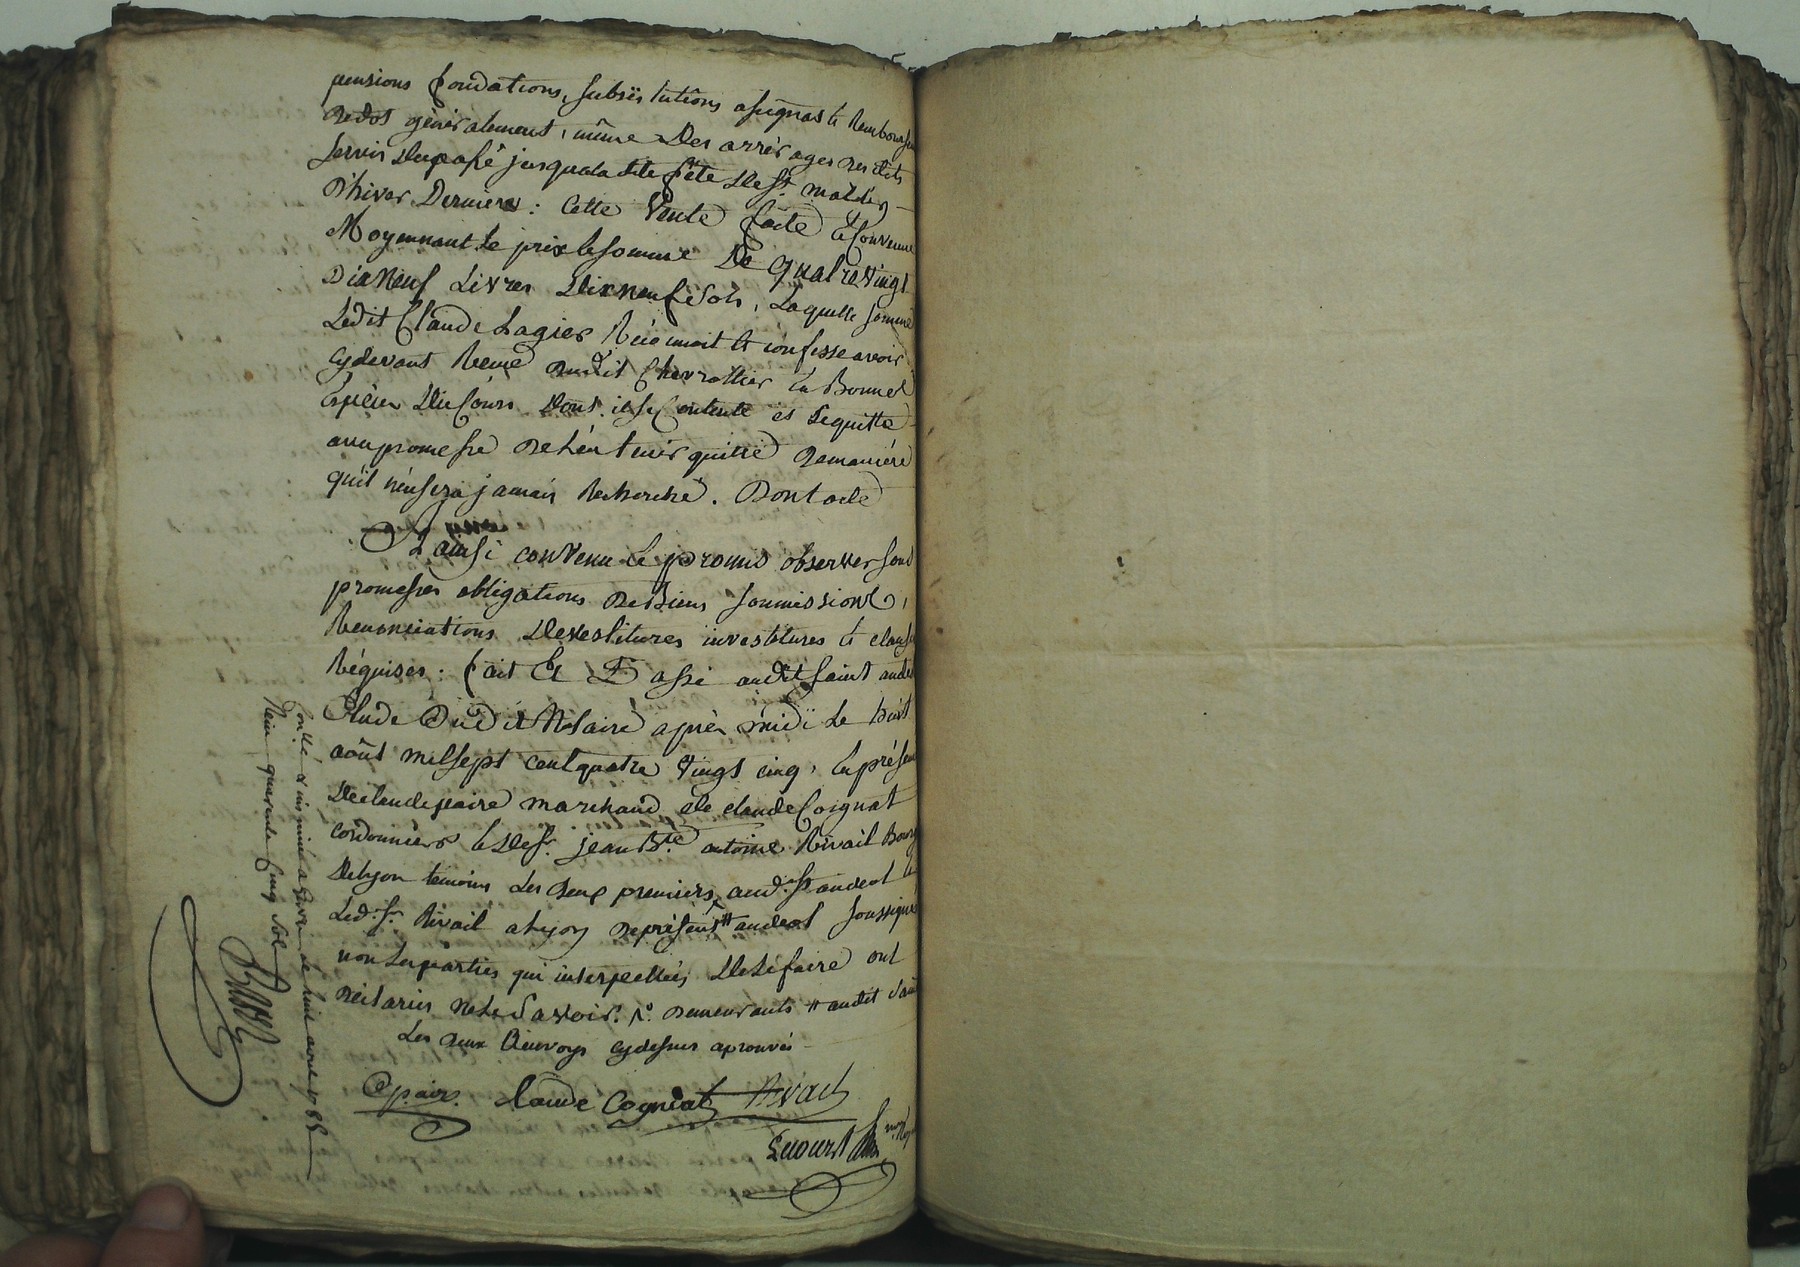 pensions fondations, substitutions assignas & Rembours
generalement, même des arrérages des dits
servis du passé jusqua la dite fête de st.
D'hiver Derniere : Cette Vente faite & Convenue
Moyennant le prix & somme De quatre Vingt
Dix Neuf Livres Dix neuf sols, Laquelle somme
Ledit Claude Lagier Réconnoit & confesse avoir
cydevant Receue dudit Chevrottier En Bonnes
Espéces du Cours dont il se Contente et Lequitte
avec promesse de Len tenir quitte de maniére
qu'il n'en sera jamais Recherché. Dont acte
Et ainsi convenu & promis observer sous
promesses obligations De Biens soumissions,
Renonciations Devestitures investitures & clauses
Réquises : fait Et Passé audit saint andeol
Etude Dudit Notaire après midi Le huit
août mil sept cent quatre vingt cinq, En présence
De claude paire marchand, de claude Coignat
cordonnier & de Sr. jean Bte. antoine Rivail Bourg
De Lyon temoins Les deux premiers, aud. st andeol &
Led. Sr. Rivail a Lyon de présent # andeol soussignés
non Les parties qui interpellées de Le faire ont
déclaré ne Le savoir. demeurants # audit saint
Les deux Renvoys cydessus aprouvés
C paire. Claude Cogniat Rivail
Con.llé & insinué a Givors le huit aout 1785
Reçu quarante Cinq sols